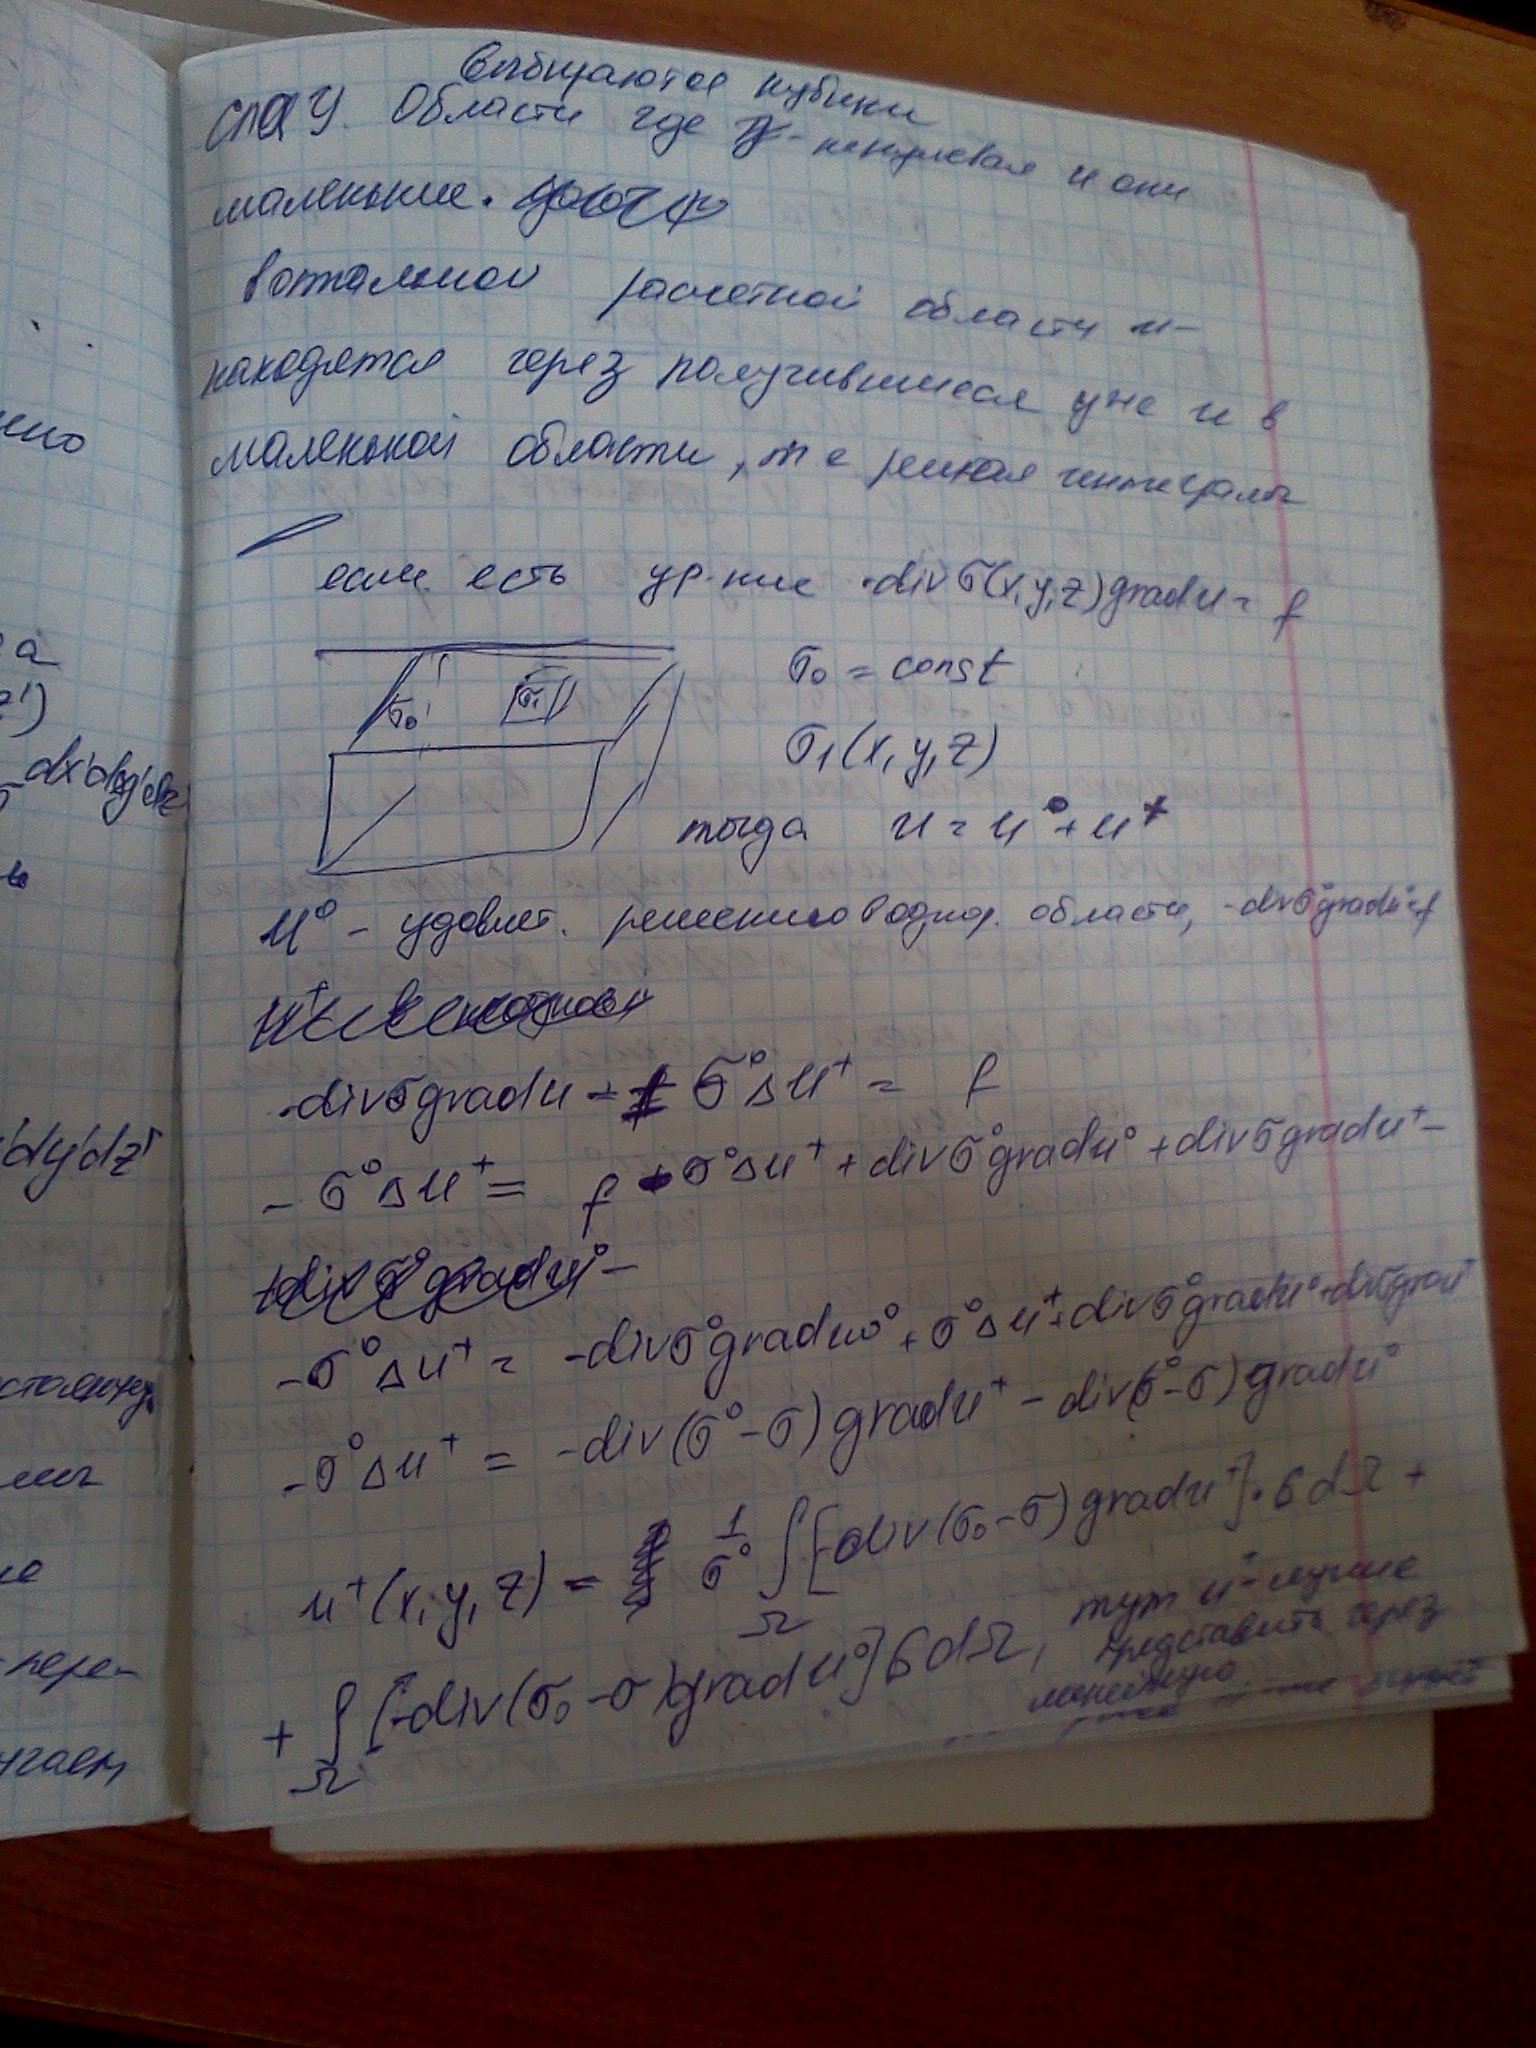 нно
а
z')
dx'dy'dz'
'dy'dz'
пере-
Выбираются кубики
СЛАУ. Области где - ненулевая и они
маленькие.
в остальной расчетной области u -
находятся через получившиеся уже u в
маленькой области, т е решая интегралы
если есть ур-ние -div σ(x,y,z) grad u = f
σ₀ σ₁
σ₀ = const
σ₁(x,y,z)
тогда u = u⁰ + u⁺
u⁰ - удовлет. решению в однор. области, -div σ⁰ grad u⁰ = f
-div σ grad u - σ⁰ Δ u⁺ = f
- σ⁰ Δ u⁺ = f + σ⁰ Δ u⁺ + div σ⁰ grad u⁰ + div σ grad u⁺ -
- σ⁰ Δ u⁺ = -div σ⁰ grad u⁰ + σ⁰ Δ u⁺ + div σ⁰ grad u⁰ + div σ grad u⁺
- σ⁰ Δ u⁺ = -div(σ⁰ - σ) grad u⁺ - div(σ⁰ - σ) grad u⁰
u⁺(x,y,z) = 1/σ⁰ ∫Ω [-div(σ₀ - σ) grad u⁺] · G dΩ +
+ ∫Ω [-div(σ₀ - σ) grad u⁰] G dΩ, тут u⁺ лучше
представить через
линейную